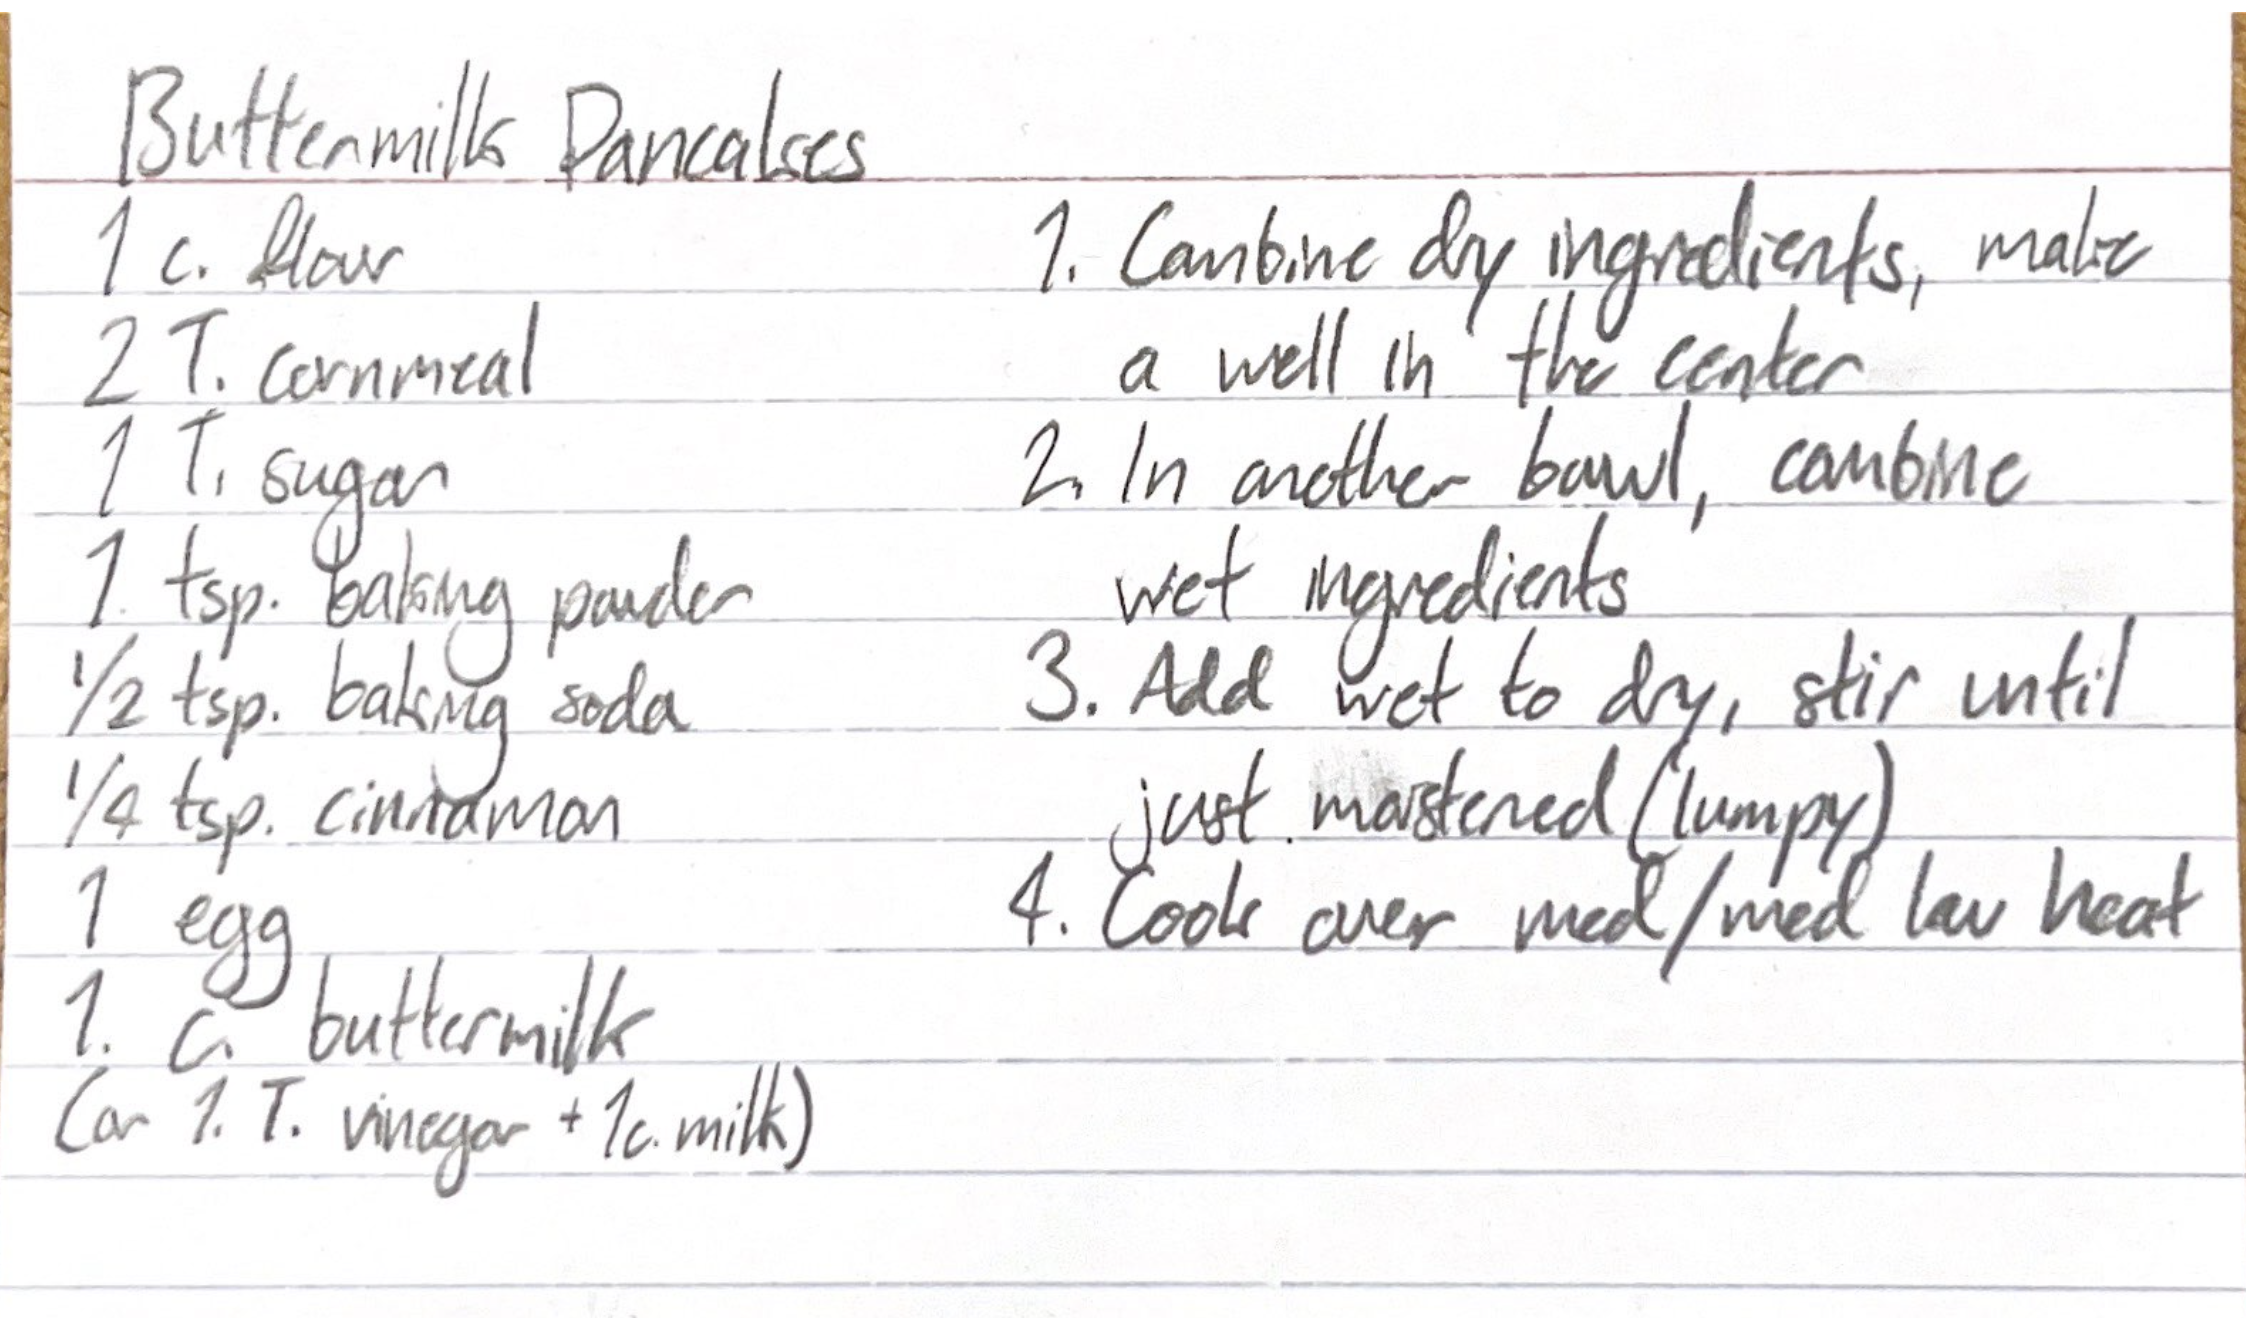 Buttermilk Pancakes
1 c. flour
2 T. cornmeal
1 T. sugar
1 tsp. baking powder
1/2 tsp. baking soda
1/4 tsp. cinnamon
1 egg
1. c. buttermilk
(or 1. T. vinegar + 1c. milk)
1. Combine dry ingredients, make
a well in the center
2. In another bowl, combine
wet ingredients
3. Add wet to dry, stir until
just moistened (lumpy)
4. Cook over med/med low heat